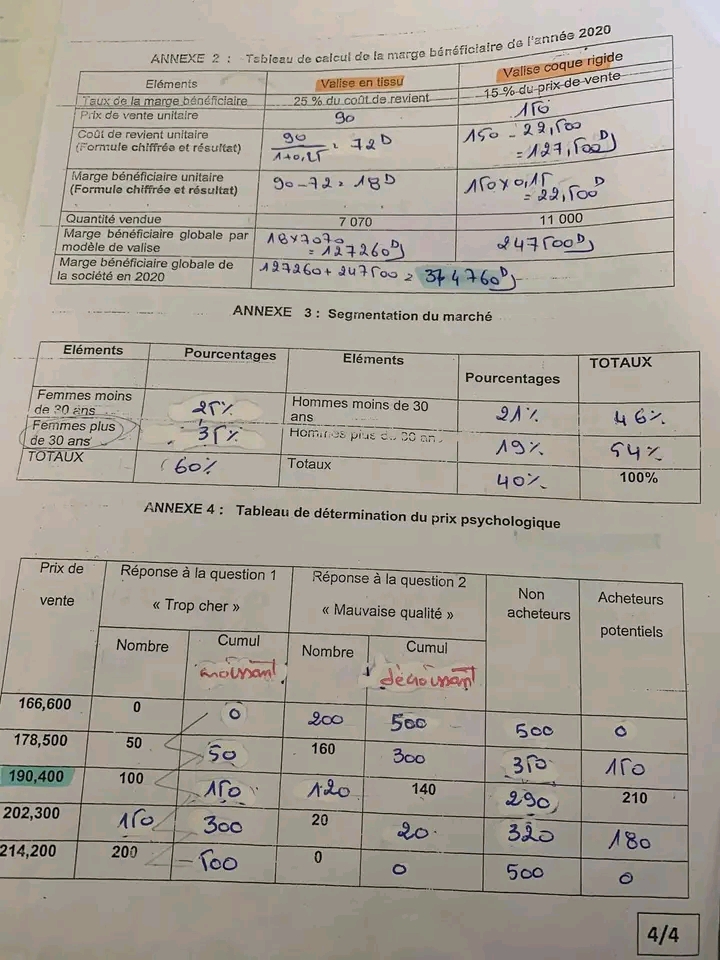 ANNEXE 2 : Tableau de calcul de la marge bénéficiaire de l'année 2020
Eléments Valise en tissu Valise coque rigide
Taux de la marge bénéficiaire 25 % du coût de revient 15 % du prix de vente
Prix de vente unitaire 90 150
Coût de revient unitaire
(Formule chiffrée et résultat) 90 / 1+0,25 = 72D 150 - 22,500 = 127,500D
Marge bénéficiaire unitaire
(Formule chiffrée et résultat) 90-72 = 18D 150 x 0,15 = 22,500D
Quantité vendue 7 070 11 000
Marge bénéficiaire globale par
modèle de valise 18x7070 = 127260D 247500D
Marge bénéficiaire globale de
la société en 2020 127260 + 247500 = 374760D
ANNEXE 3 : Segmentation du marché
Eléments Pourcentages Eléments Pourcentages TOTAUX
Femmes moins
de 30 ans 25% Hommes moins de 30
ans 21% 46%
Femmes plus
de 30 ans 35% Hommes plus de 30 ans 19% 54%
TOTAUX 60% Totaux 40% 100%
ANNEXE 4 : Tableau de détermination du prix psychologique
Prix de
vente
Réponse à la question 1
« Trop cher »
Réponse à la question 2
« Mauvaise qualité »
Non
acheteurs
Acheteurs
potentiels
Nombre Cumul croissant Nombre Cumul décroissant
166,600 0 0 200 500 500 0
178,500 50 50 160 300 350 150
190,400 100 150 120 140 290 210
202,300 150 300 20 20 320 180
214,200 200 500 0 0 500 0
4/4